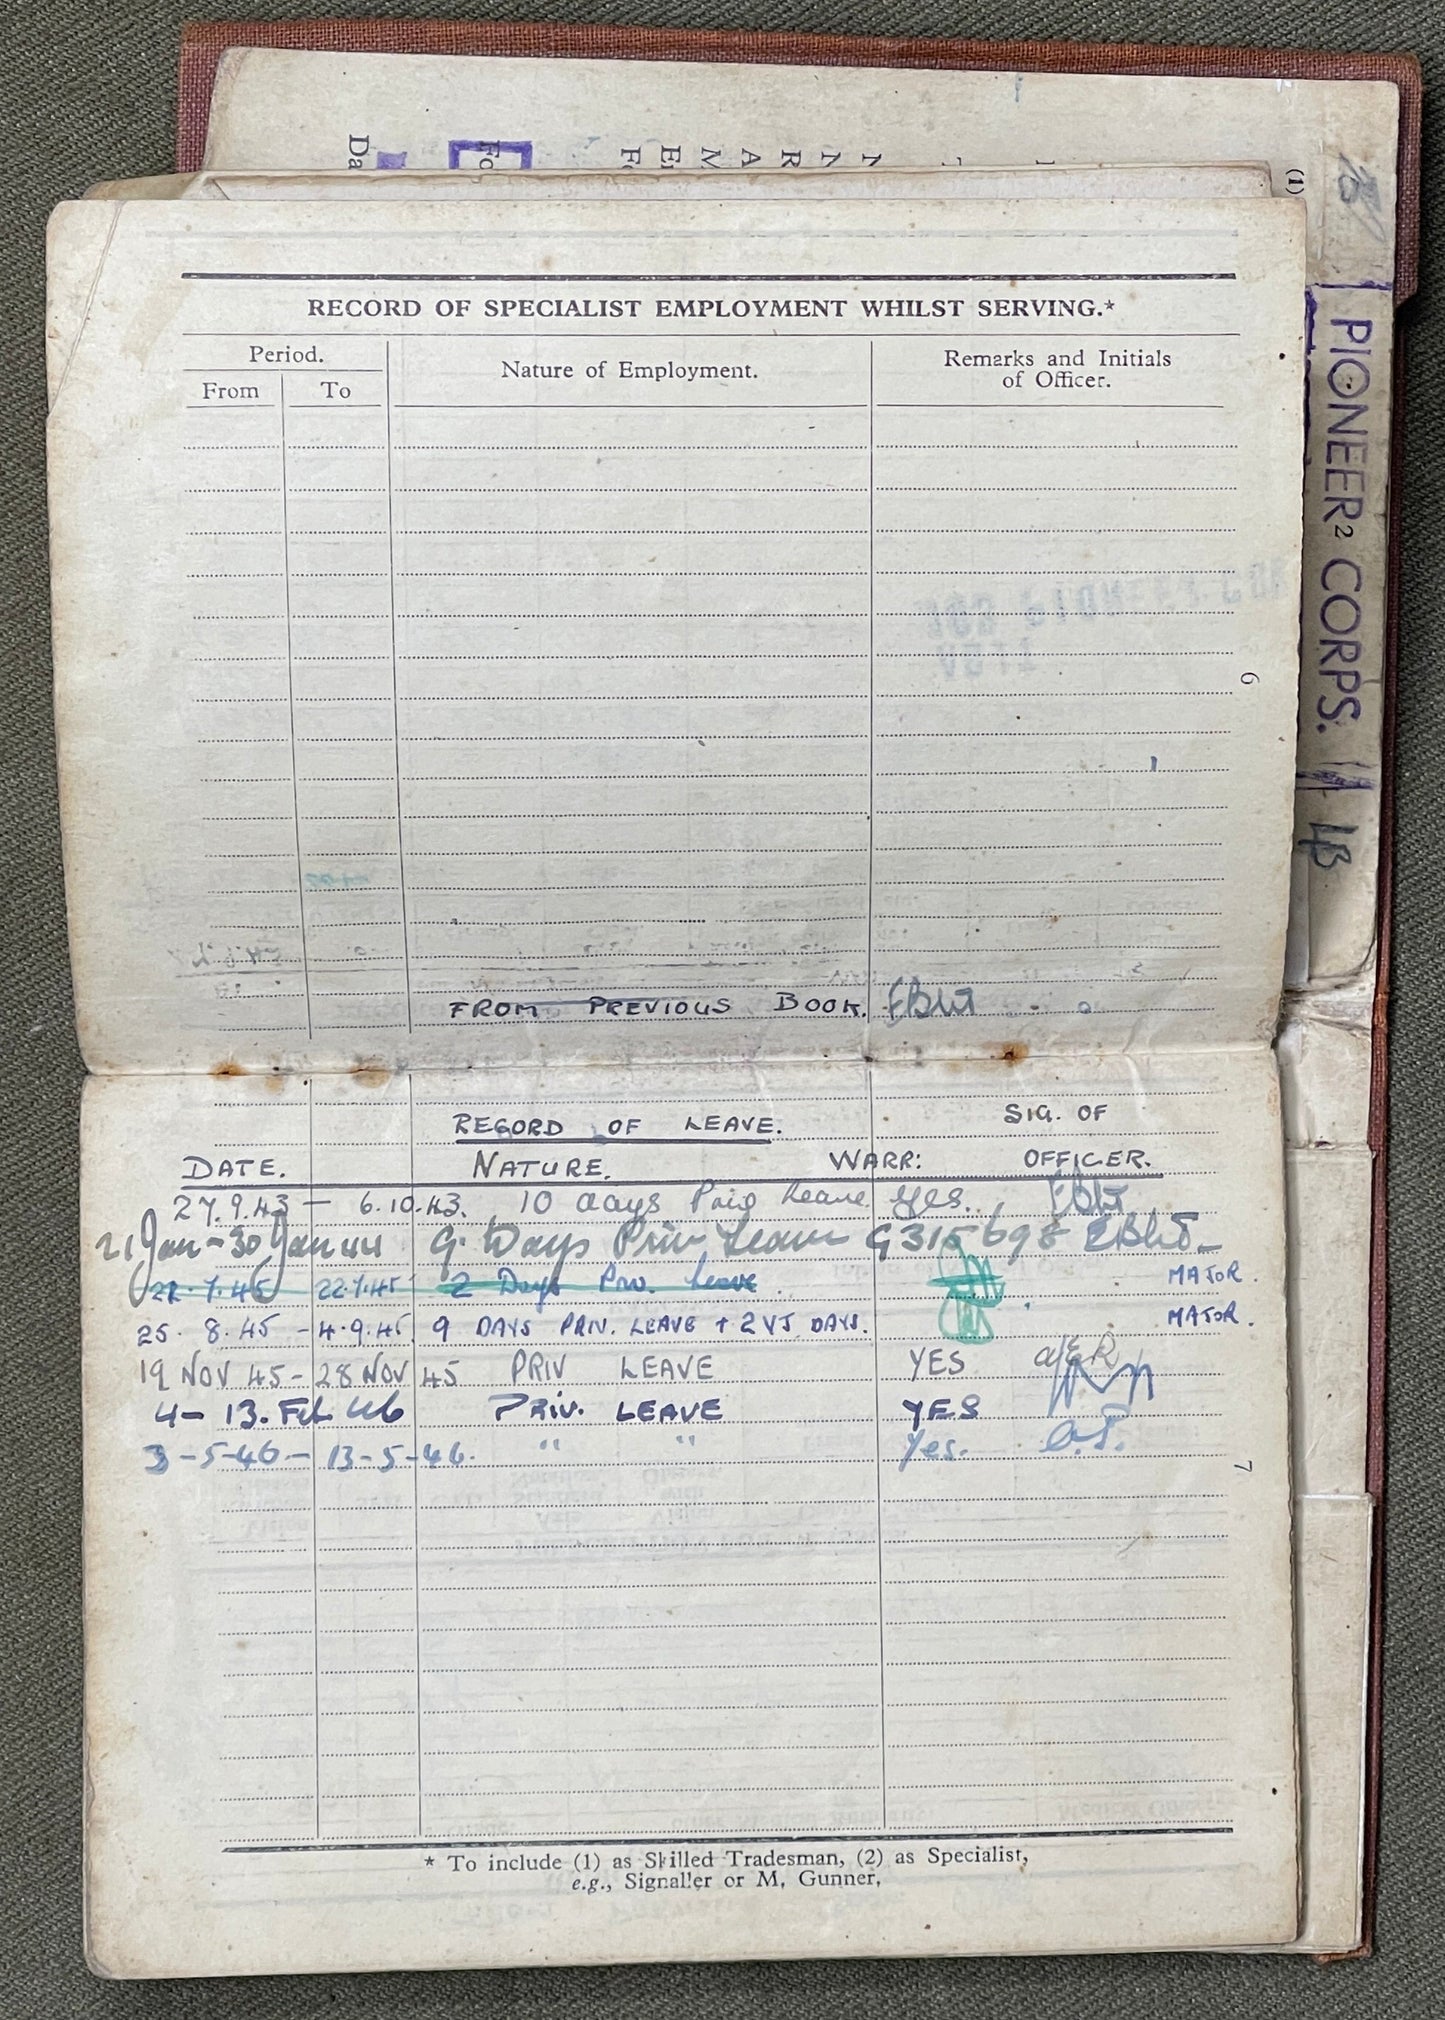 (1)
RECORD OF SPECIALIST EMPLOYMENT WHILST SERVING.*
Period.
From To
Nature of Employment.
Remarks and Initials
of Officer.
PIONEER CORPS.
2
6
FROM PREVIOUS BOOK.
RECORD OF LEAVE. SIG. OF
DATE. NATURE. WARR: OFFICER.
27.9.43 — 6.10.43. 10 days Priv Leave Yes.
21 Jan - 30 Jan 44 9 Days Priv Leave
22.7.45 22.7.45 2 Days Priv. Leave. MAJOR.
25. 8. 45 - 4.9.45 9 DAYS PRIV. LEAVE + 2 VJ DAYS. MAJOR.
19 NOV 45 - 28 NOV 45 PRIV LEAVE YES
4 - 13. Feb 46 PRIV. LEAVE YES
3-5-46 - 13-5-46. " " Yes.
7
* To include (1) as Skilled Tradesman, (2) as Specialist,
e.g., Signaller or M. Gunner,